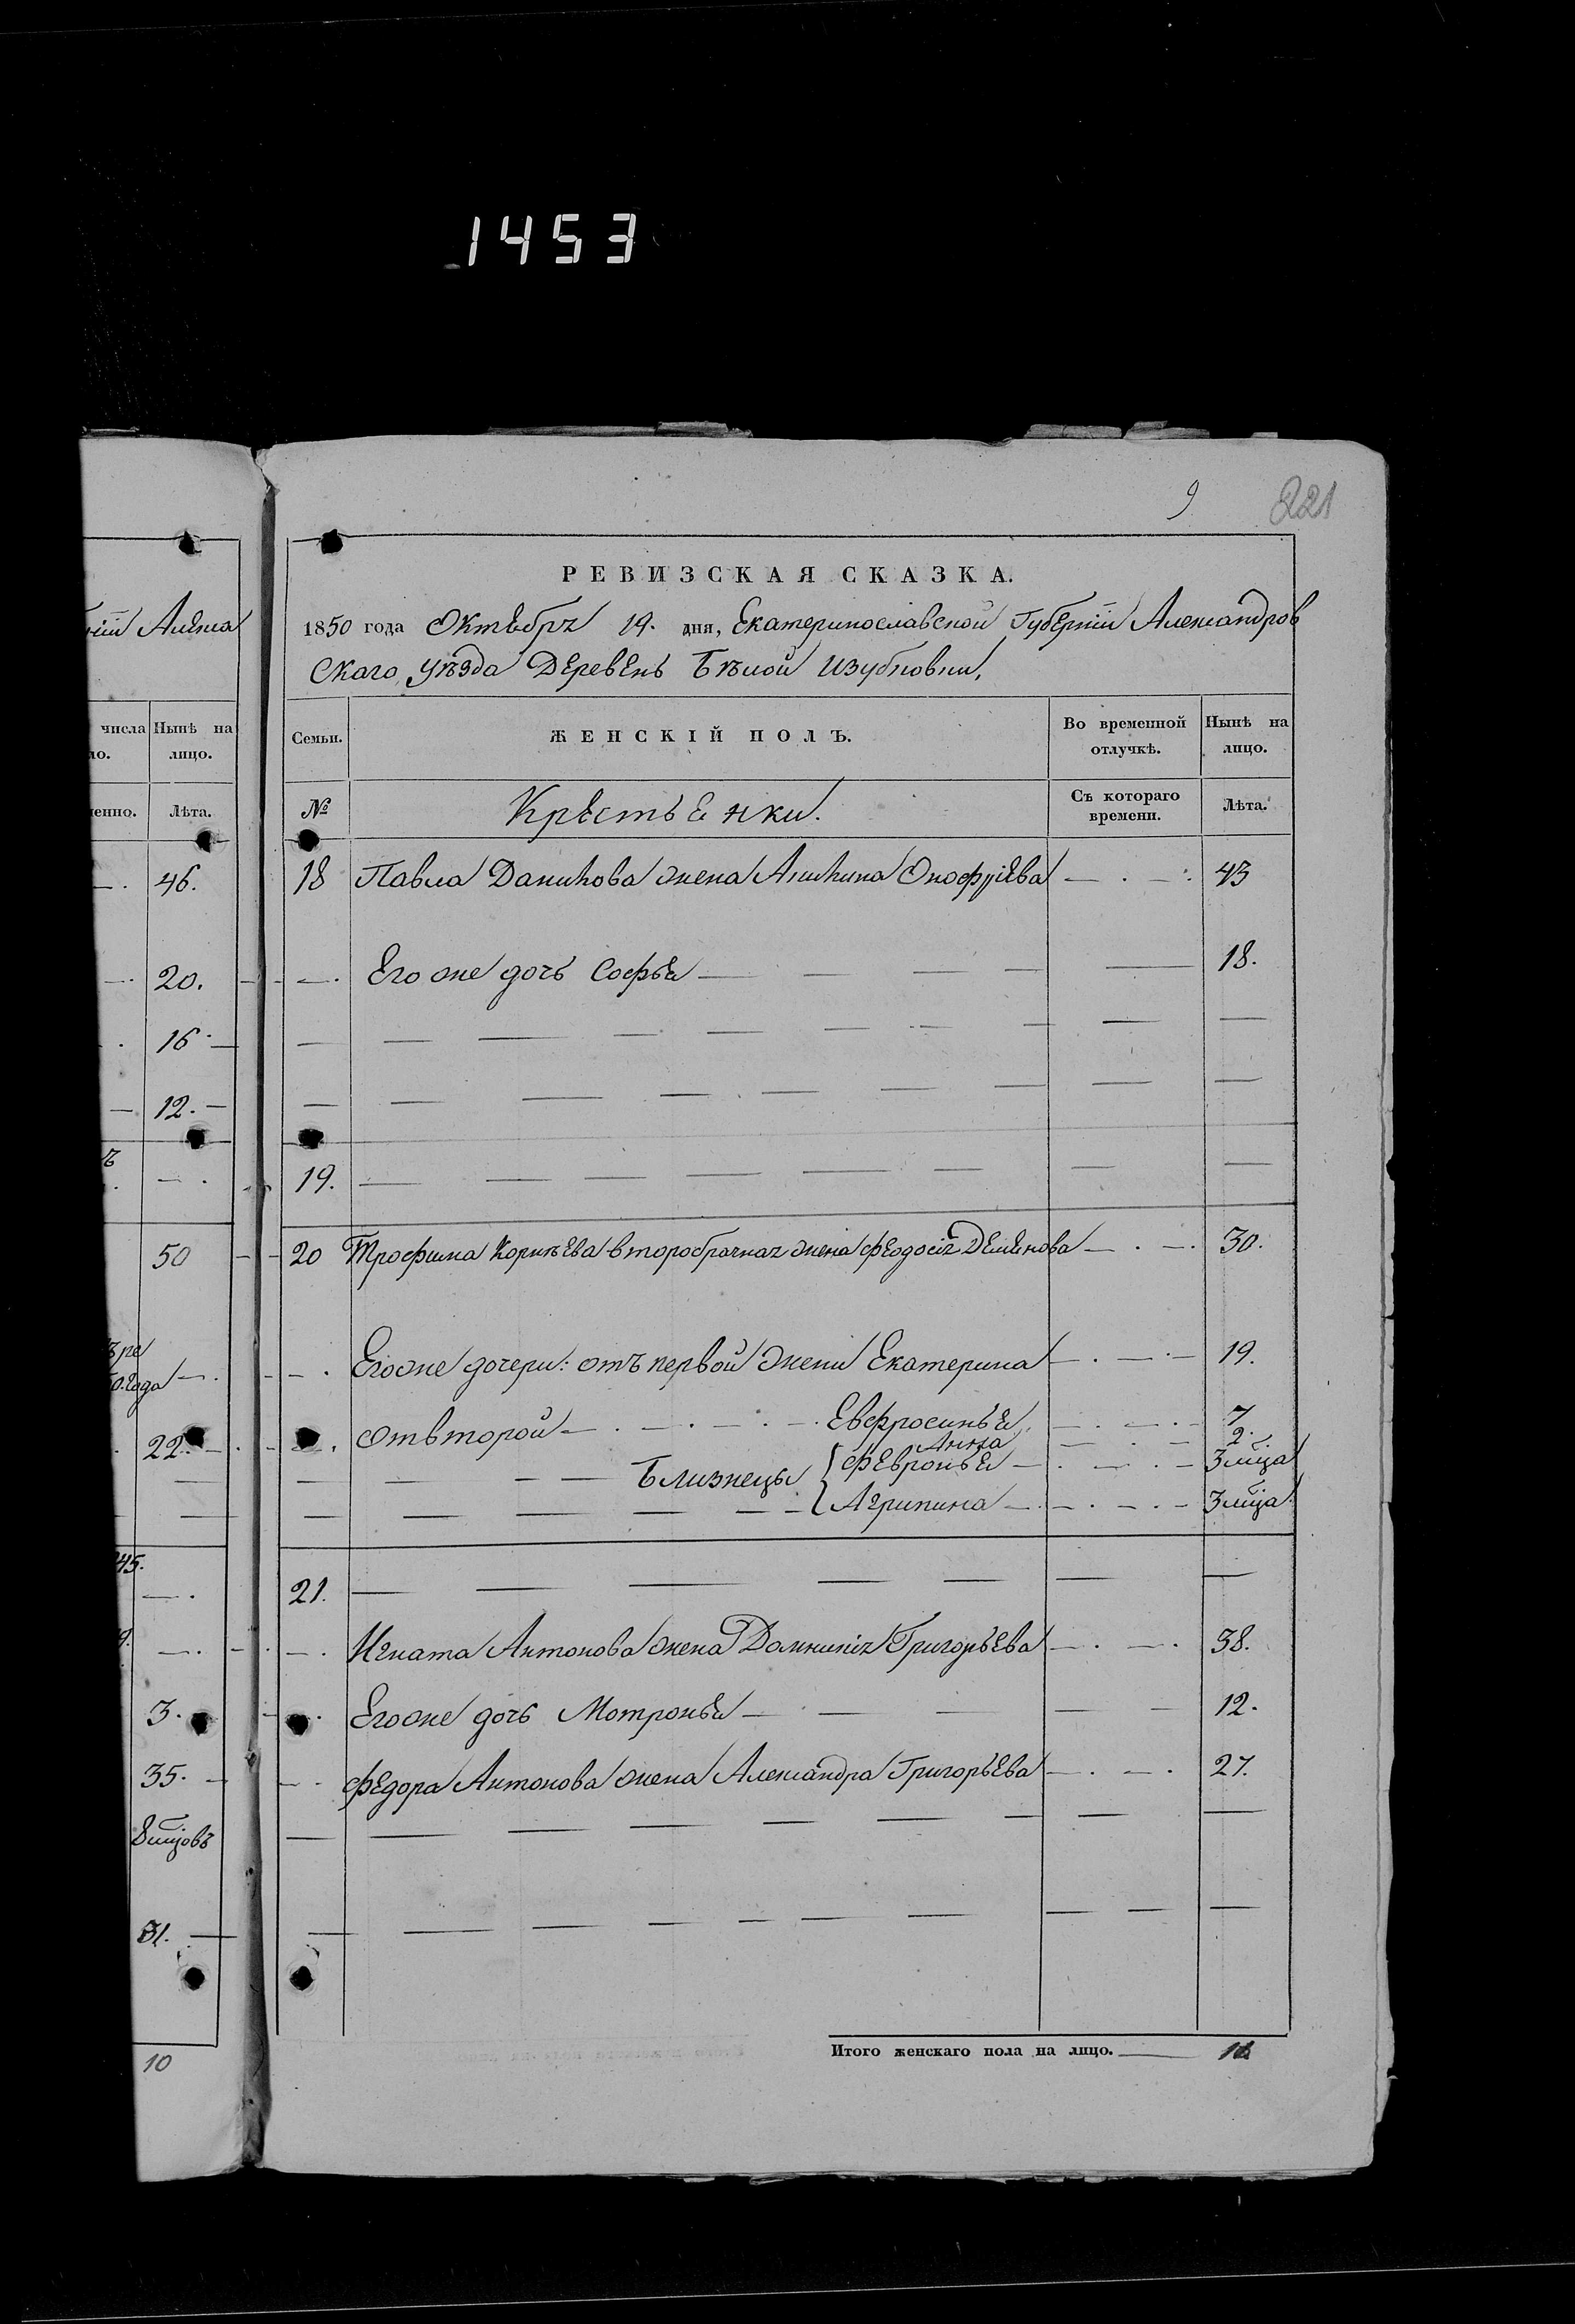 1453
9 221
РЕВИЗСКАЯ СКАЗКА.
1850 года Октября 19. дня, Екатеринославской Губерніи Александров
скаго, уѣзда деревень Бѣлой и Зубковки,
Семьи. ЖЕНСКІЙ ПОЛЪ. Во временной отлучкѣ. Нынѣ на лицо.
№ Крестьянки. Съ котораго времени. Лѣта.
18 Павла Данилова жена Акилина Онофріева 43
Его же дочь Софья 18.
19.
20 Трофима Корнѣева второбрачная жена Феодосія Демянова 30.
Его же дочери: отъ первой жени Екатерина 19.
от второй Евфросинья 7
Анна 2.
Близнецы Февронья 3 мца
Агрипина 3 мца
21.
Игната Антонова жена Домникія Григорьева 38.
Его же дочь Мотронья 12.
Федора Антонова жена Александра Григорьева 27.
Итого женскаго пола на лицо.
ніи Алекса
числа Нынѣ на
ло. лицо.
менно. Лѣта.
46.
20.
16
12.
50
0. года
22.
45.
3.
35.
8 мцовъ
31.
10